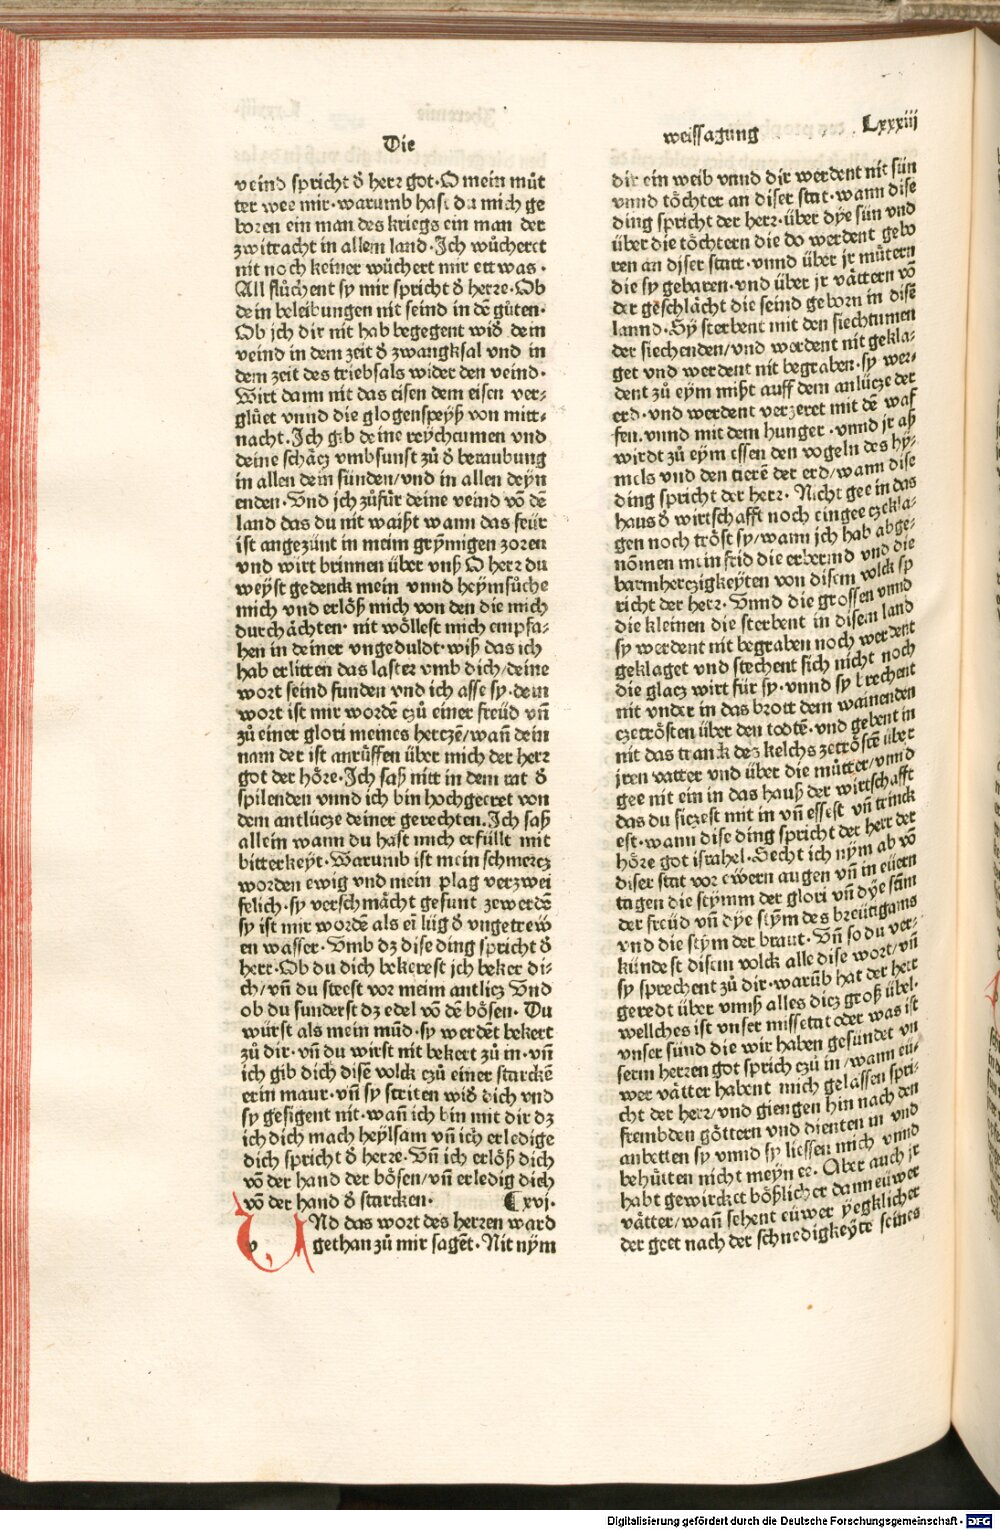 Die
weissagung
Lxxxiii
veind spricht ð herr got·O mein můt
ter wee mir·warumb hast du mich ge
boren ein man des kriegs ein man der
zwitracht in allem land·Ich wůchert
nit noch keiner wůchert mir ettwas·
All flůchent sy mir spricht ð herre·Ob
dein beleibungen nit seind in dē gůten·
Ob ich dir nit hab begegent wið dein
veind in dem zeit ð zwangksal vnd in
dem zeit des triebsals wider den veind·
Wirt dann nit das eisen dem eisen ver-
glůet vnnd die glogenspeyß von mitt-
nacht.Ich gib deine reychtumen vnd
deine schåcz vmbsunst zů ð beraubung
in allen dein sünden/vnd in allen deyn
enden·Vnd ich zůfůr deine veind vō dē
land das du nit waißt wann das feür
ist angezünt in meim grymigen zoren
vnd wirt brinnen über vnß O herr du
weyst gedenck mein vnnd heymsůche
mich vnd erlöß mich von den die mich
durchåchten· nit wöllest mich empfa-
hen in deiner vngeduldt·wiß das ich
hab erlitten das laster vmb dich/deine
wort seind funden vnd ich asse sy·dein
wort ist mir wordē czů einer freüd vñ
zů einer glori meines herczē/wañ dein
nam der ist anrůffen über mich der herr
got der höre·Ich saß nitt in dem rat ð
spilenden vnnd ich bin hochgeeret von
dem antlücze deiner gerechten.Ich saß
allein wann du hast mich erfüllt mit
bitterkeyt·Warumb ist mein schmercz
worden ewig vnd mein plag verzwei
felich·sy verschmåcht gesunt zewerdē
sy ist mir wordē als ei lüg ð vngetrew
en wasser·Vmb dz dise ding spricht ð
herr·Ob du dich bekerest ich beker di-
ch/vñ du steest vor meim antlicz Vnd
ob du sunderst dz edel vō dē bösen· Du
würst als mein mūd·sy werdēt bekert
zů dir·vñ du wirst nit bekert zů in·vñ
ich gib dich disē volck czů einer starckē
erin maur·vñ sy striten wið dich vnd
sy gesigent nit·wañ ich bin mit dir dz
ich dich mach heylsam vñ ich erledige
dich spricht ð herre·Vñ ich erlöß dich
vō der hand der bösen/vñ erledig dich
vō der hand ð starcken· ¶xvj·
VNd das wort des herren ward
gethan zů mir sagēt·Nit nym
dir ein weib vnnd dir werdent nit sün
vnnd töchter an diser stat·wann dise
ding spricht der herr·über dye sün vnd
über die töchtern die do werdent gebo
ren an diser statt·vnnd über jr můtern
die sy gebaren·vnd über jr våttern vō
der geschlåcht die seind geborn in disē
lannd·Sy sterbent mit den siechtumen
der siechenden/vnd werdent nit gekla-
get vnd werdent nit begraben·sy wer-
dent zů eym mißt auff dem anlücze der
erd·vnd werdent verzeret mit dē waf
fen.vnnd mit dem hunger·vnnd jr aß
wirdt zů eym essen den vogeln des hy-
mels vnd den tierē der erd/wann dise
ding spricht der herr· Nicht gee in das
hauß ð wirtschafft noch eingee czekla-
gen noch tröst sy/wann ich hab abge-
nōmen mein frid die erbermd vnd die
barmherczigkeyten von disem volck sp
richt der herr·Vnnd die grossen vnnd
die kleinen die sterbent in disem land
sy werdent nit begraben noch werdent
geklaget vnd stechent sich nicht noch
die glacz wirt für sy·vnnd sy brechent
nit vnder in das brott dem wainenden
czetrösten über den todtē·vnd gebent in
nit das tranck des kelchs zetröstē über
jren vatter vnd über die můtter/vnnd
gee nit ein in das hauß der wirtschafft
das du siczest mit in vñ essest vñ trinck
est·wann dise ding spricht der herr der
höre got israhel·Secht ich nym ab vō
diser stat vor ewern augen vñ in eüern
tagen die stymm der glori vñ dye stim
der freüd vñ dye stym des breütigams
vnd die stym der braut·Vñ so du ver-
kündest disem volck alle dise wort/vñ
sy sprechent zů dir·warūb hat der herr
geredt über vnnß alles dicz groß übel·
wellches ist vnser missetat oder was ist
vnser sünd die wir haben gesündet vn
serm herren got sprich czů in/wann eü-
wer våtter habent mich gelassen spri-
cht der herr/vnd giengen hin nach den
frembden göttern vnd dienten in vnd
anbetten sy vnnd sy liessen mich vnnd
behütten nicht meyn ee· Aber auch jr
habt gewircket bößlicher dann euwer
våtter/wañ sehent euwer yegklicher
der geet nach der schnedigkeyte seines
Digitalisierung gefördert durch die Deutsche Forschungsgemeinschaft - DFG